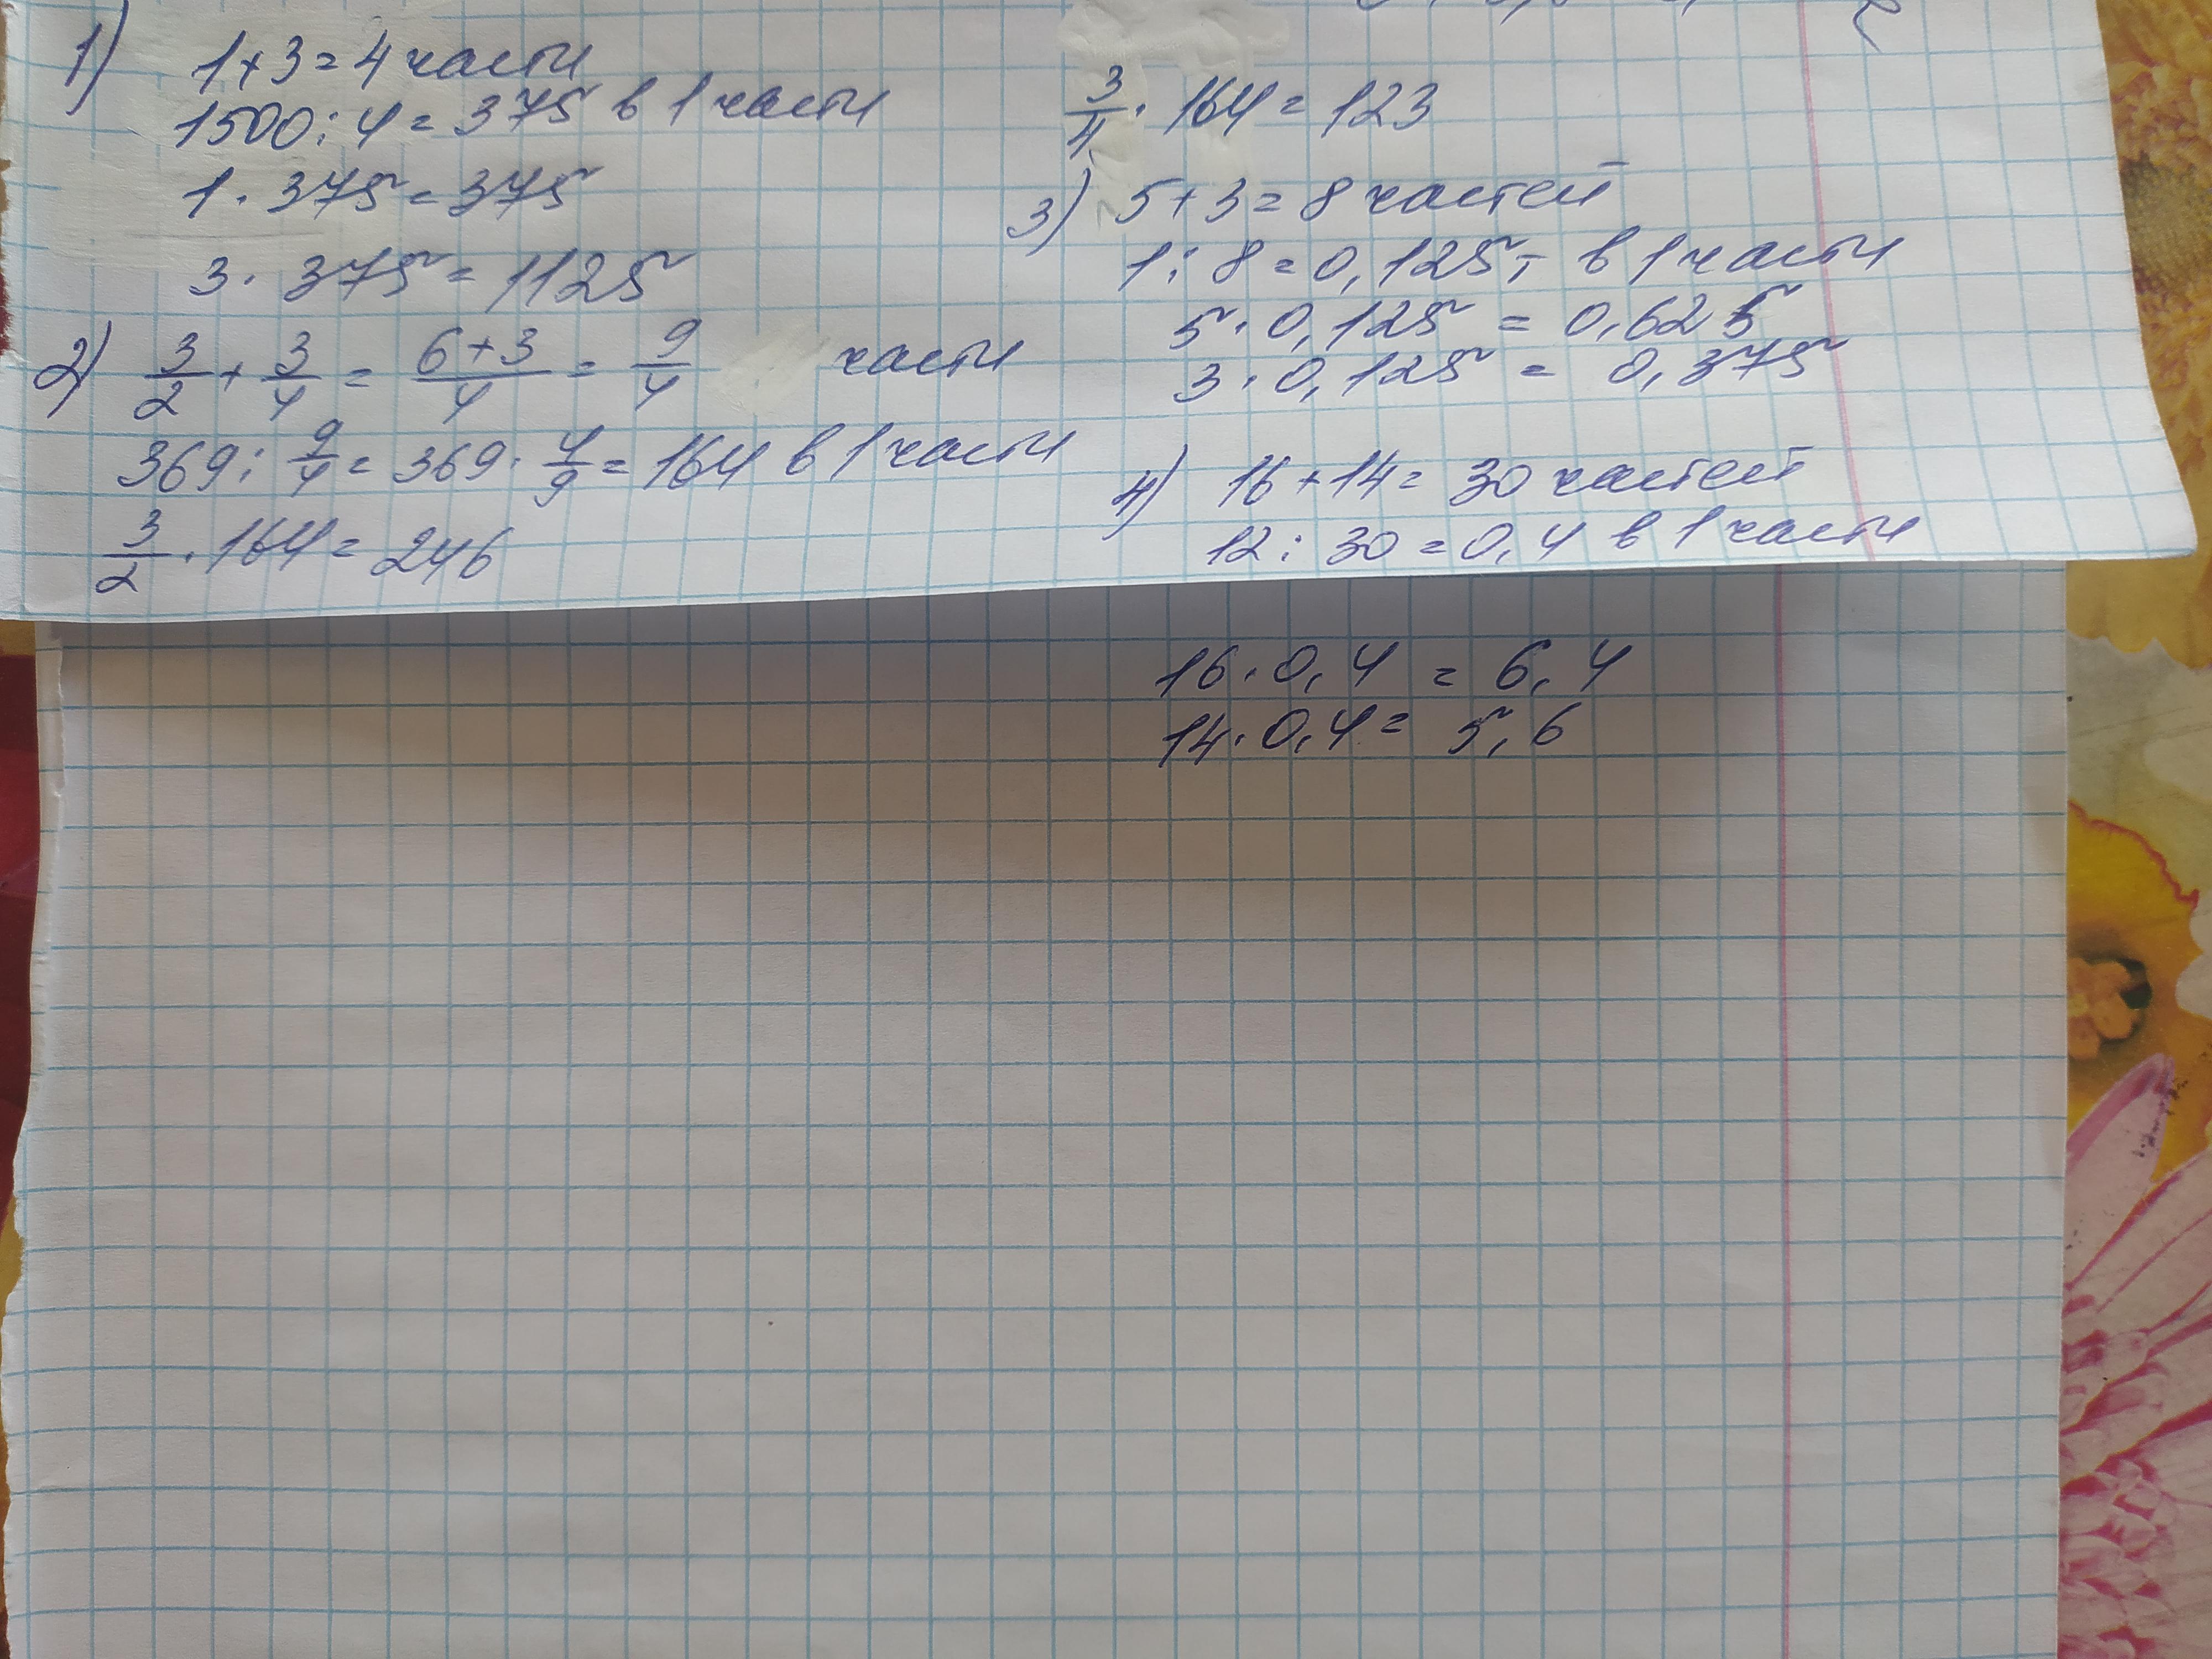 1) 1+3=4 части
1500:4=375 в 1 части
1·375=375
3·375=1125
2) 3/2+3/4=6+3/4=9/4 части
369:9/4=369·4/9=164 в 1 части
3/2·164=246
3/4·164=123
3) 5+3=8 частей
1:8=0,125- в 1 части
5·0,125=0,625
3·0,125=0,375
4) 16+14=30 частей
12:30=0,4 в 1 части
16·0,4=6,4
14·0,4=5,6